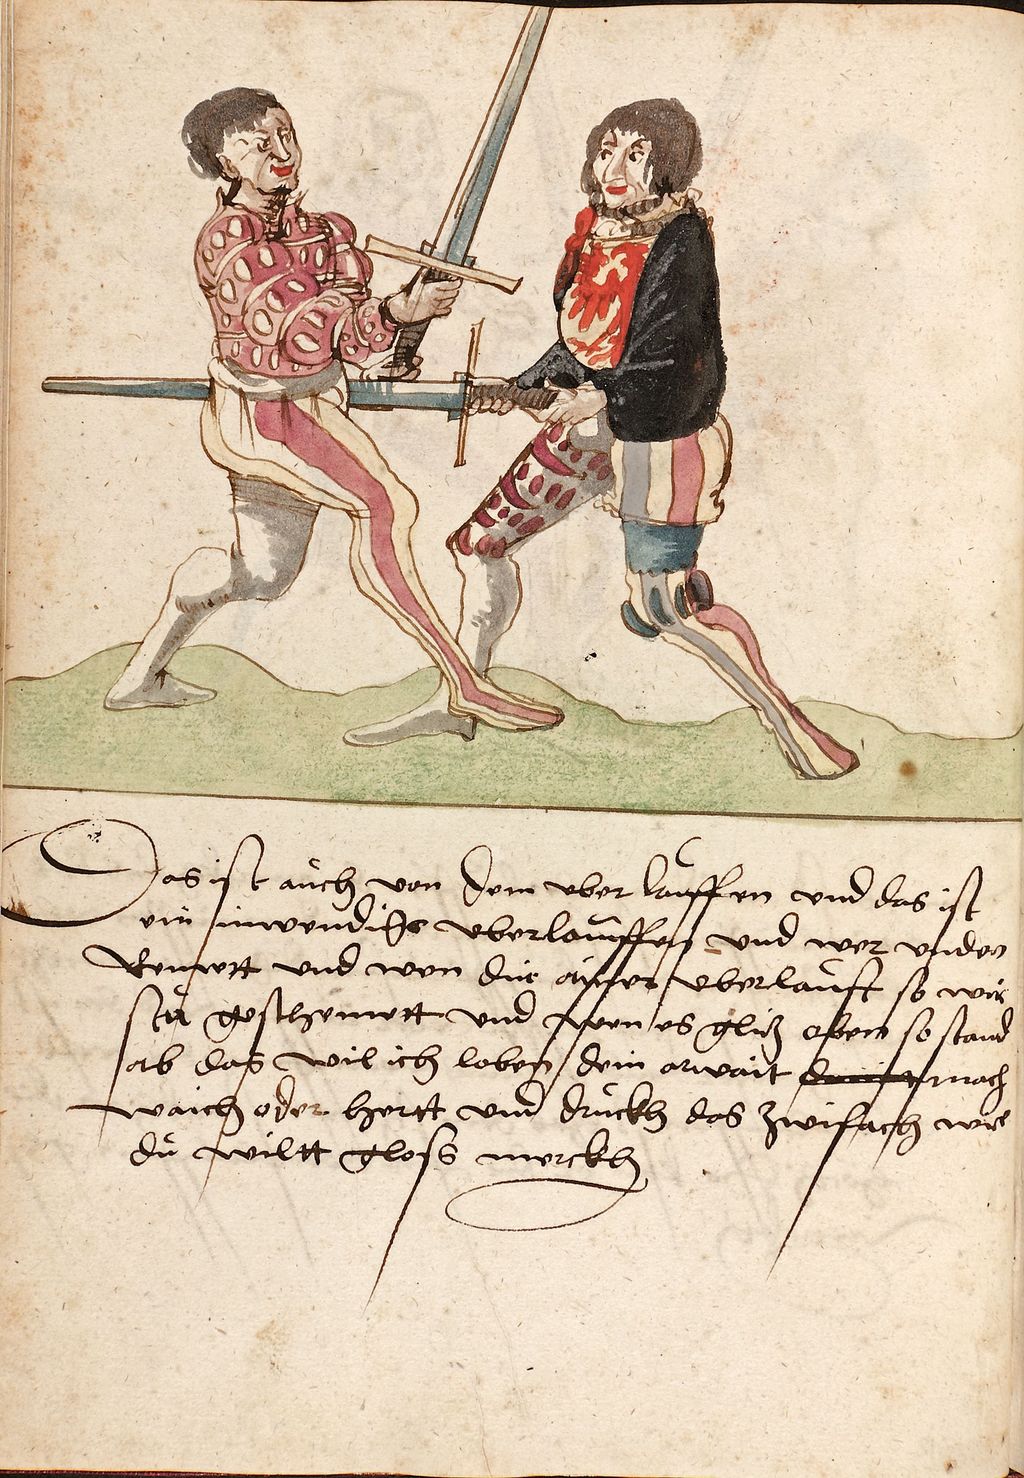 Das ist aüch von dem vber lauffen vnd das ist
ein inwendigs vberlauffen vnd wer vnden
Remett vnd wen dür ainer vberlaüft so wir
stü geschemett vnd wen es glitz oben so stand
ab das wil ich loben dein arwait nach
waich oder hertt vnd drückh das zwifach wie
dü wiltt gloss merckh